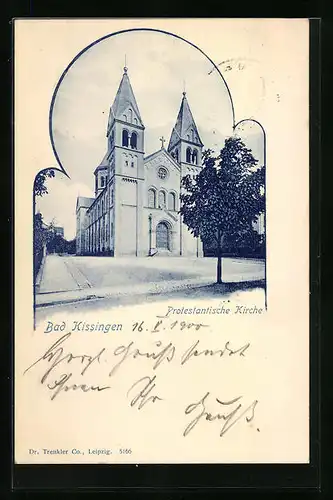 Protestantische Kirche
Bad Kissingen 16. X. 1900
Herzl. Gruß sendet
Ihnen Ihr
Dr. Trenkler Co., Leipzig. 5166